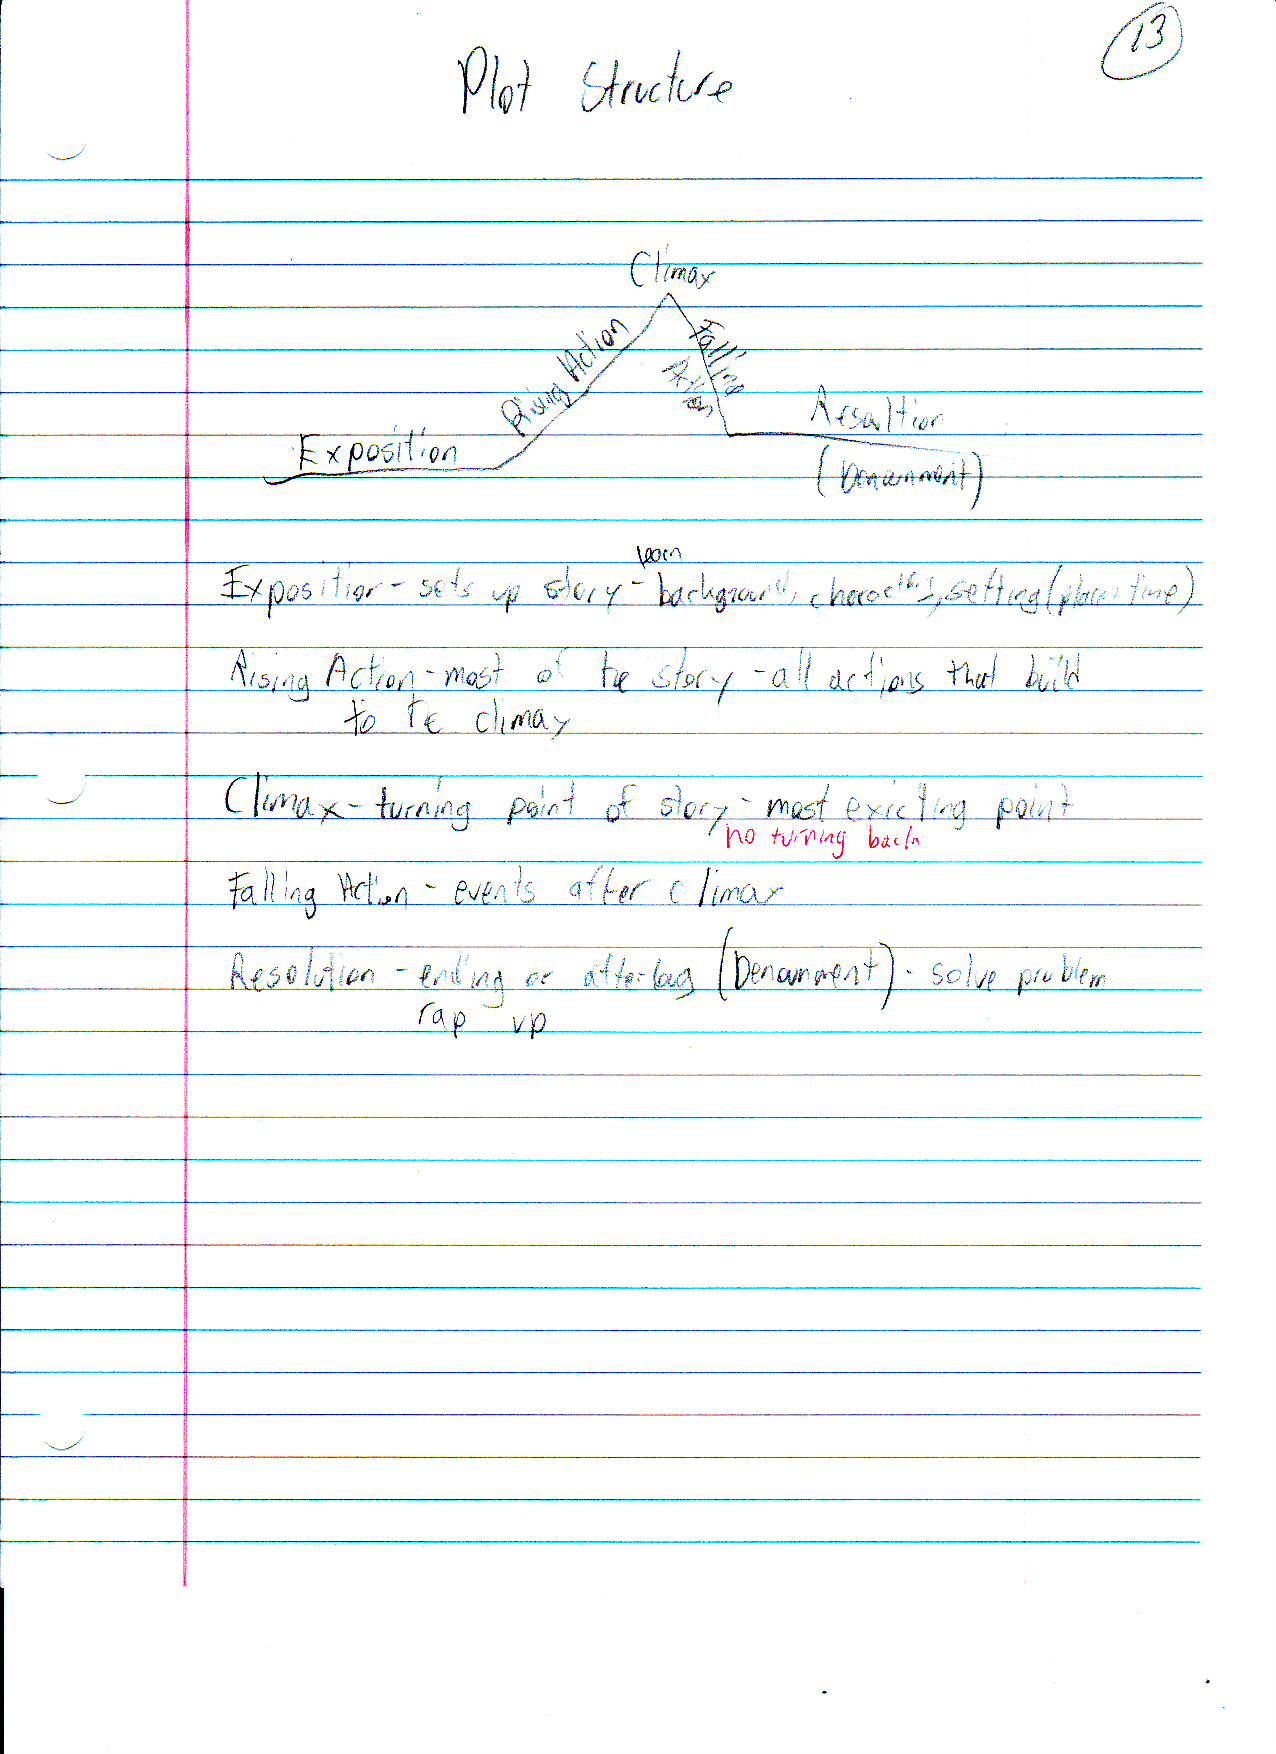 13
Plot Structure
Climax
Rising Action
Falling
Action
Exposition
Resoltion
(Denounment)
learn
Exposition - sets up story - background, characters, setting (place, time)
Rising Action - most of the story - all actions that build
to the climax
Climax - turning point of story - most exicting point
no turning back
Falling Action - events after climax
Resolution - ending or (Denounment) - solve problem
rap up